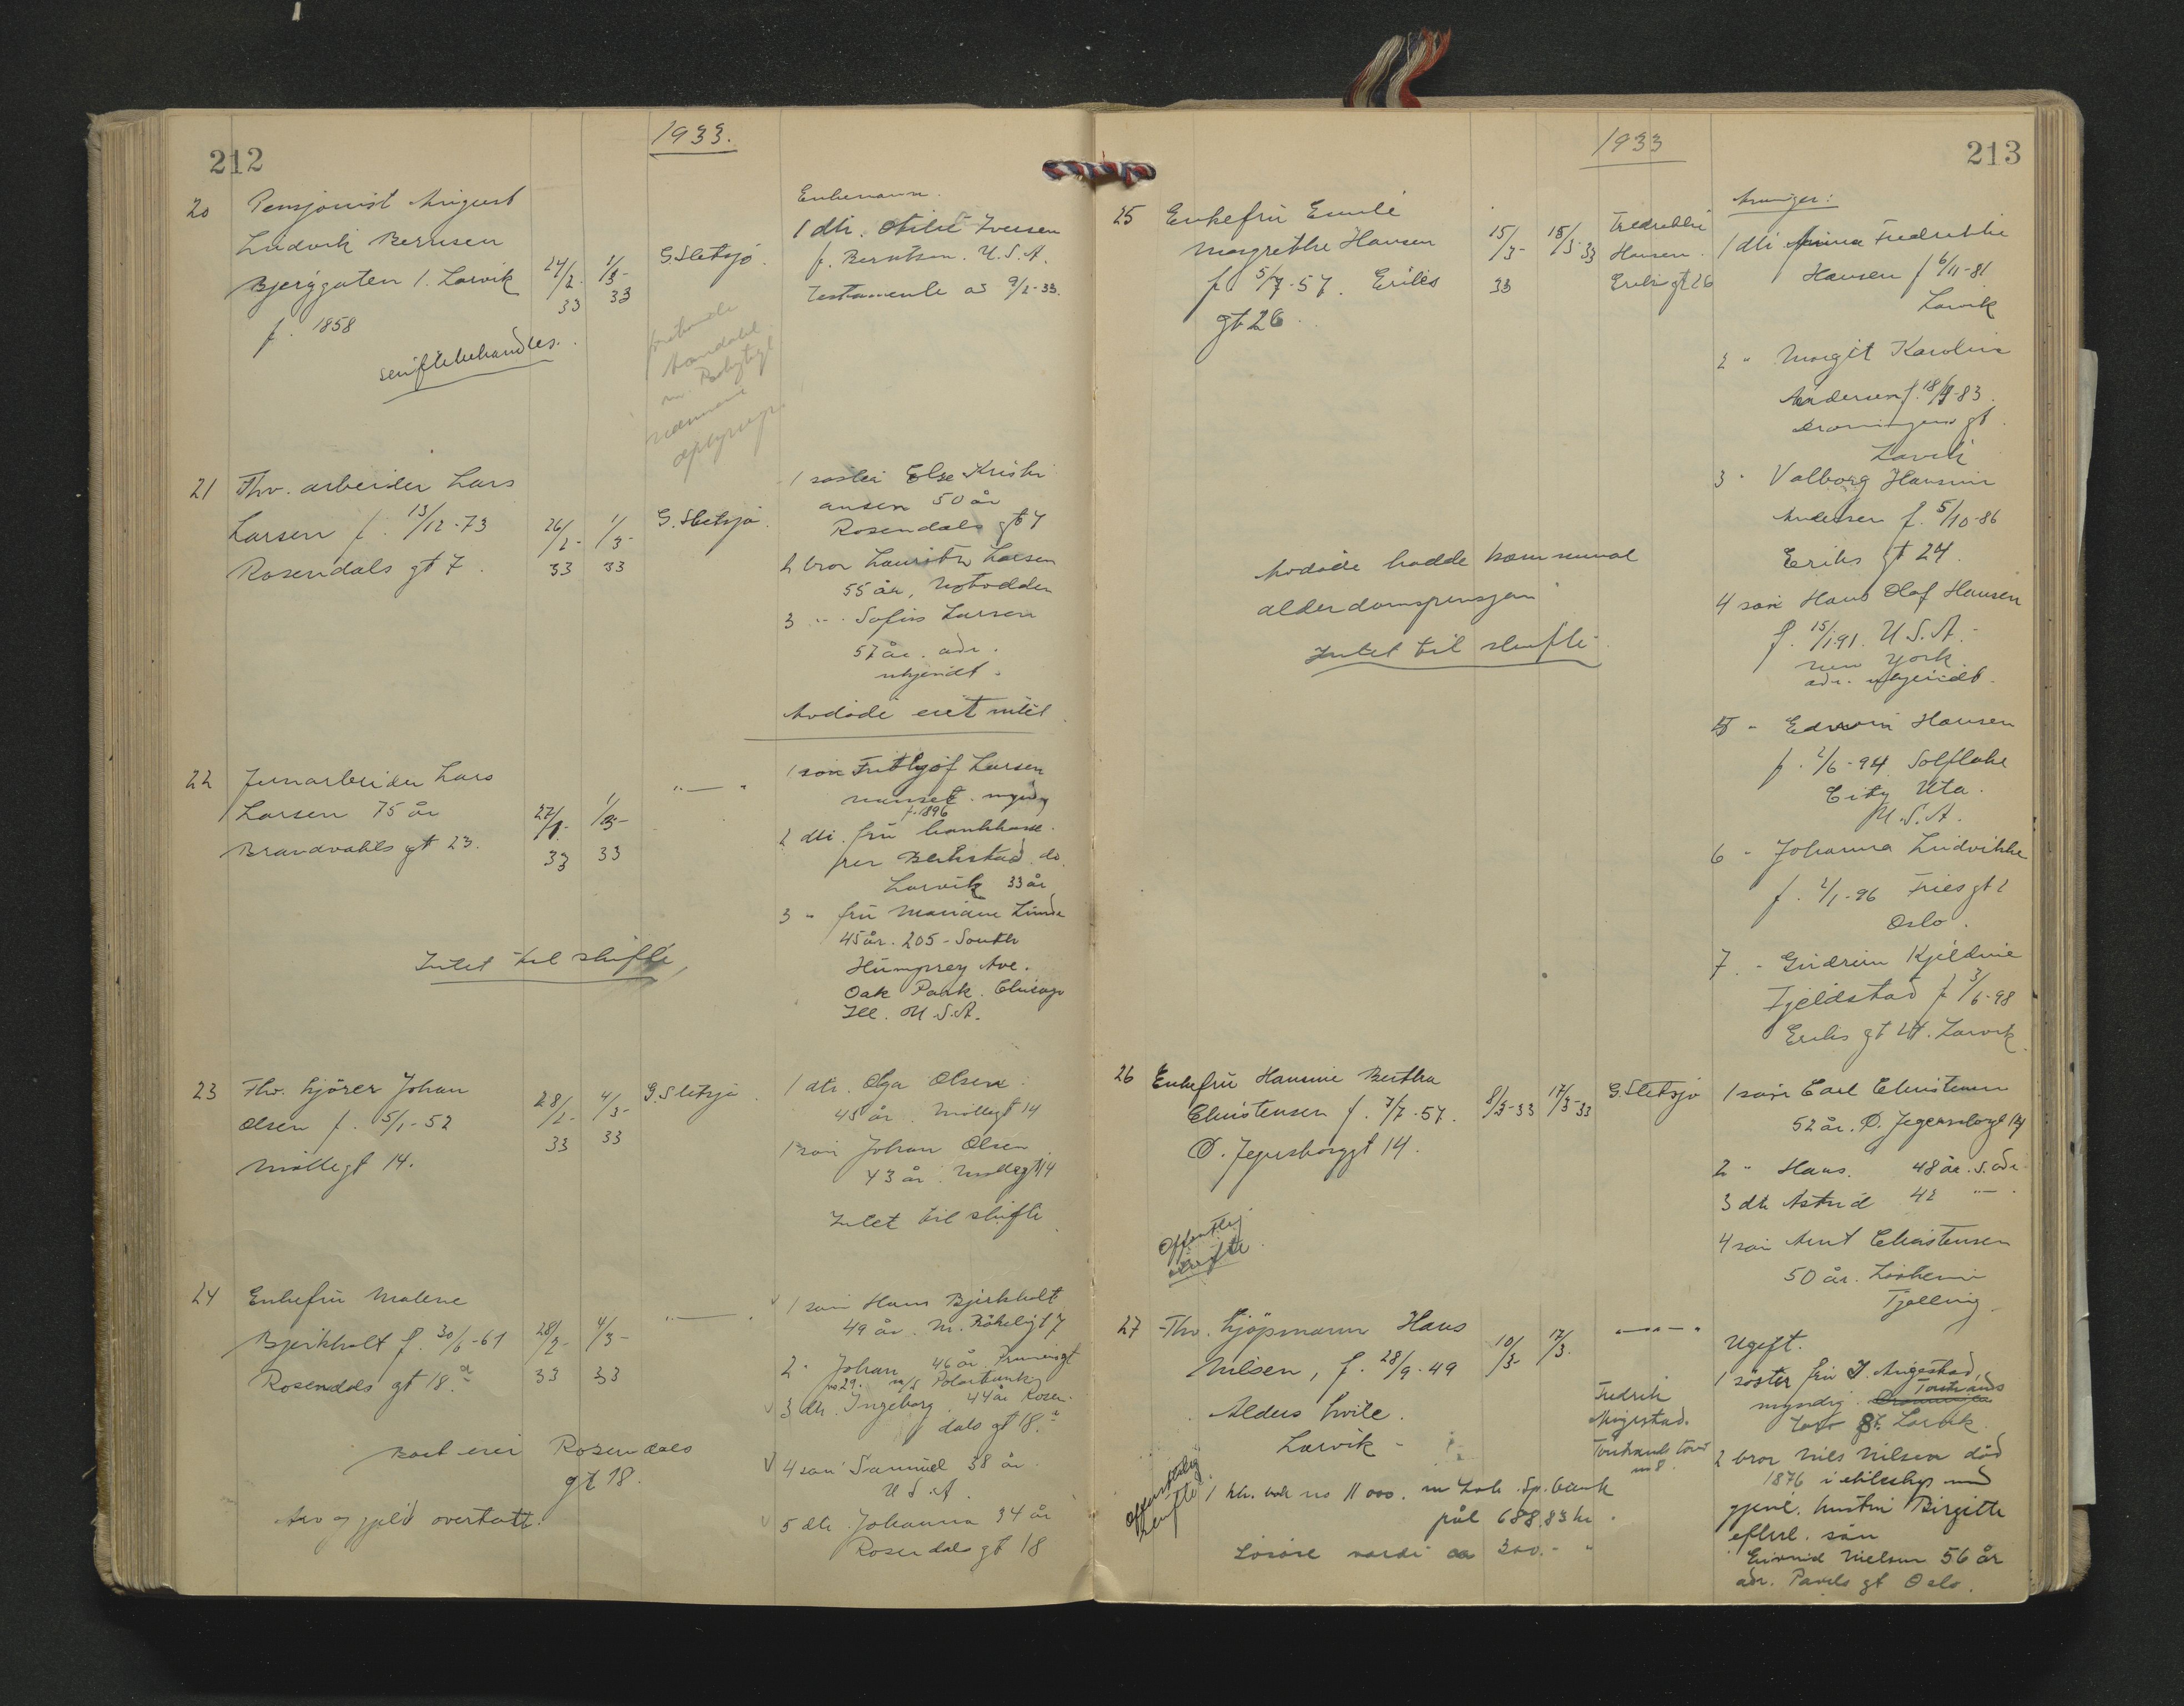 212
1933.
20 Pensjonist August
Ludvik Berntsen
Bjerggaten 1. Larvik
f. 1858
24/2-33
1/3-33
G. Sletsjø.
Enkemann.
1 dtr. Otilie Iversen
f. Berntsen. U.S.A.
Testamente av 9/2-33.
skiftebehandles.
21 Fhv. arbeider Lars
Larsen f. 13/12-73
Rosendals gt 7.
26/2-33
1/3-33
G. Sletsjø.
1 søster Else Kristi
ansen 50 år
Rosendals gt 7
2 bror Lauritz Larsen
55 år, Notodden
3 " Sofus Larsen
57 år. adr.
ukjendt.
Avdøde eiet intet
22 Jernarbeider Lars
Larsen 75 år
Brandvakts gt 23.
27/1-33
1/3-33
" — "
1 søn Frithjof Larsen
Nanset. myndig
f. 1896
2 dtr. fru
Larvik 33 år
3 " fru Mariane Linde
45 år. 205 - South
Humprey Ave.
Oak Park. Chicago
Ill. U.S.A.
Intet til skifte
23 Fhv. kjører Johan
Olsen f. 5/1-52
Møllegt 14.
28/2-33
4/3-33
G. Sletsjø.
1 dtr. Olga Olsen
45 år. Møllegt 14
1 søn Johan Olsen
43 år. Møllegt 14
Intet til skifte
24 Enkefru Malene
Bjerkholt f. 30/6-61
Rosendals gt 18 a
28/2-33
4/3-33
" — "
1 søn Hans Bjerkholt
49 år.
2 " Johan 46 år.
no 29. m/s Polartank
3 dtr. Ingeborg. 44 år Rosen-
dals gt 18 a
4 søn Samuel 38 år.
U S. A.
5 dtr. Johanna 34 år
Rosendals gt 18
Boet eier Rosendals
gt 18.
Arv og gjeld overtatt.
1933
213
25 Enkefru Emilie
Margrethe Hansen
f 5/7-57. Eriks
gt 26.
15/3-33
18/3-33
Fredrikke
Hansen.
Eriks gt 26
Arvinger:
1 dtr. Anna Fredrikke
Hansen f 6/11-81
Larvik
2 " Margit Karoline
Andersen f. 18/9-83.
Dronningens gt.
Larvik
3 " Valborg Hansine
Andersen f. 5/10-86
Eriks gt 24.
4 søn Hans Olaf Hansen
f. 15/1 91. U.S.A.-
New York.
adr. ukjendt.
5 - Edwin Hansen
f. 2/6-94 Solflake
City Uta.
U.S.A.
6 - Johanna Ludvikke
f. 2/1-96 Friesgt 2
Oslo.
7 - Gudrun Kjeldine
Fjeldstad f 3/6-98
Eriks gt 24. Larvik
Avdøde hadde kommunal
alderdomspensjon
Intet til skifte
26 Enkefru Hansine Bertha
Christensen f. 7/7-57.
O. Jegersborggt 14.
8/3-33
17/3-33
G. Sletsjø
1 søn Carl Christensen
52 år. O. Jegersborggt 14
2 " Hans. 48 år. s. adr.
3 dtr Astrid 42 " — "
4 søn Arnt Christensen
50 år.
Tjølling.
Offentlig
skifte
27 Fhv. kjøpmann Hans
Nilsen, f. 28/9-49
Alders hvile.
Larvik -
10/3-
17/3.
" — " — "
Fredrik
Augestad.
Torstrands torv
no 8.
Ugift.
1 søster fru J. Augestad,
myndig. Torstrands
torv 8. Larvik.
2 bror Nils Nilsen død
1876 i ekteskap med
gjenl. hustru Birgitte
efterl. søn
Eivind Nielsen 56 år
adr. Pavels gt Oslo.
Offentlig
skifte
1 bk. bok no 11 000. m Larv. Sp. bank
pål 688,83 kr.
Løsøre verdi ca 300.- "